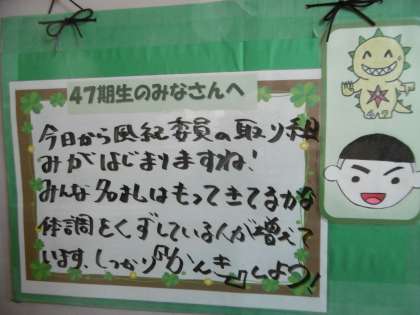 47期生のみなさんへ
今日から風紀委員の取り組
みがはじまりますね!
みんな名ふだはもってきてるかな
体調をくずしている人が増えて
います、しっかり『かんき』しよう!